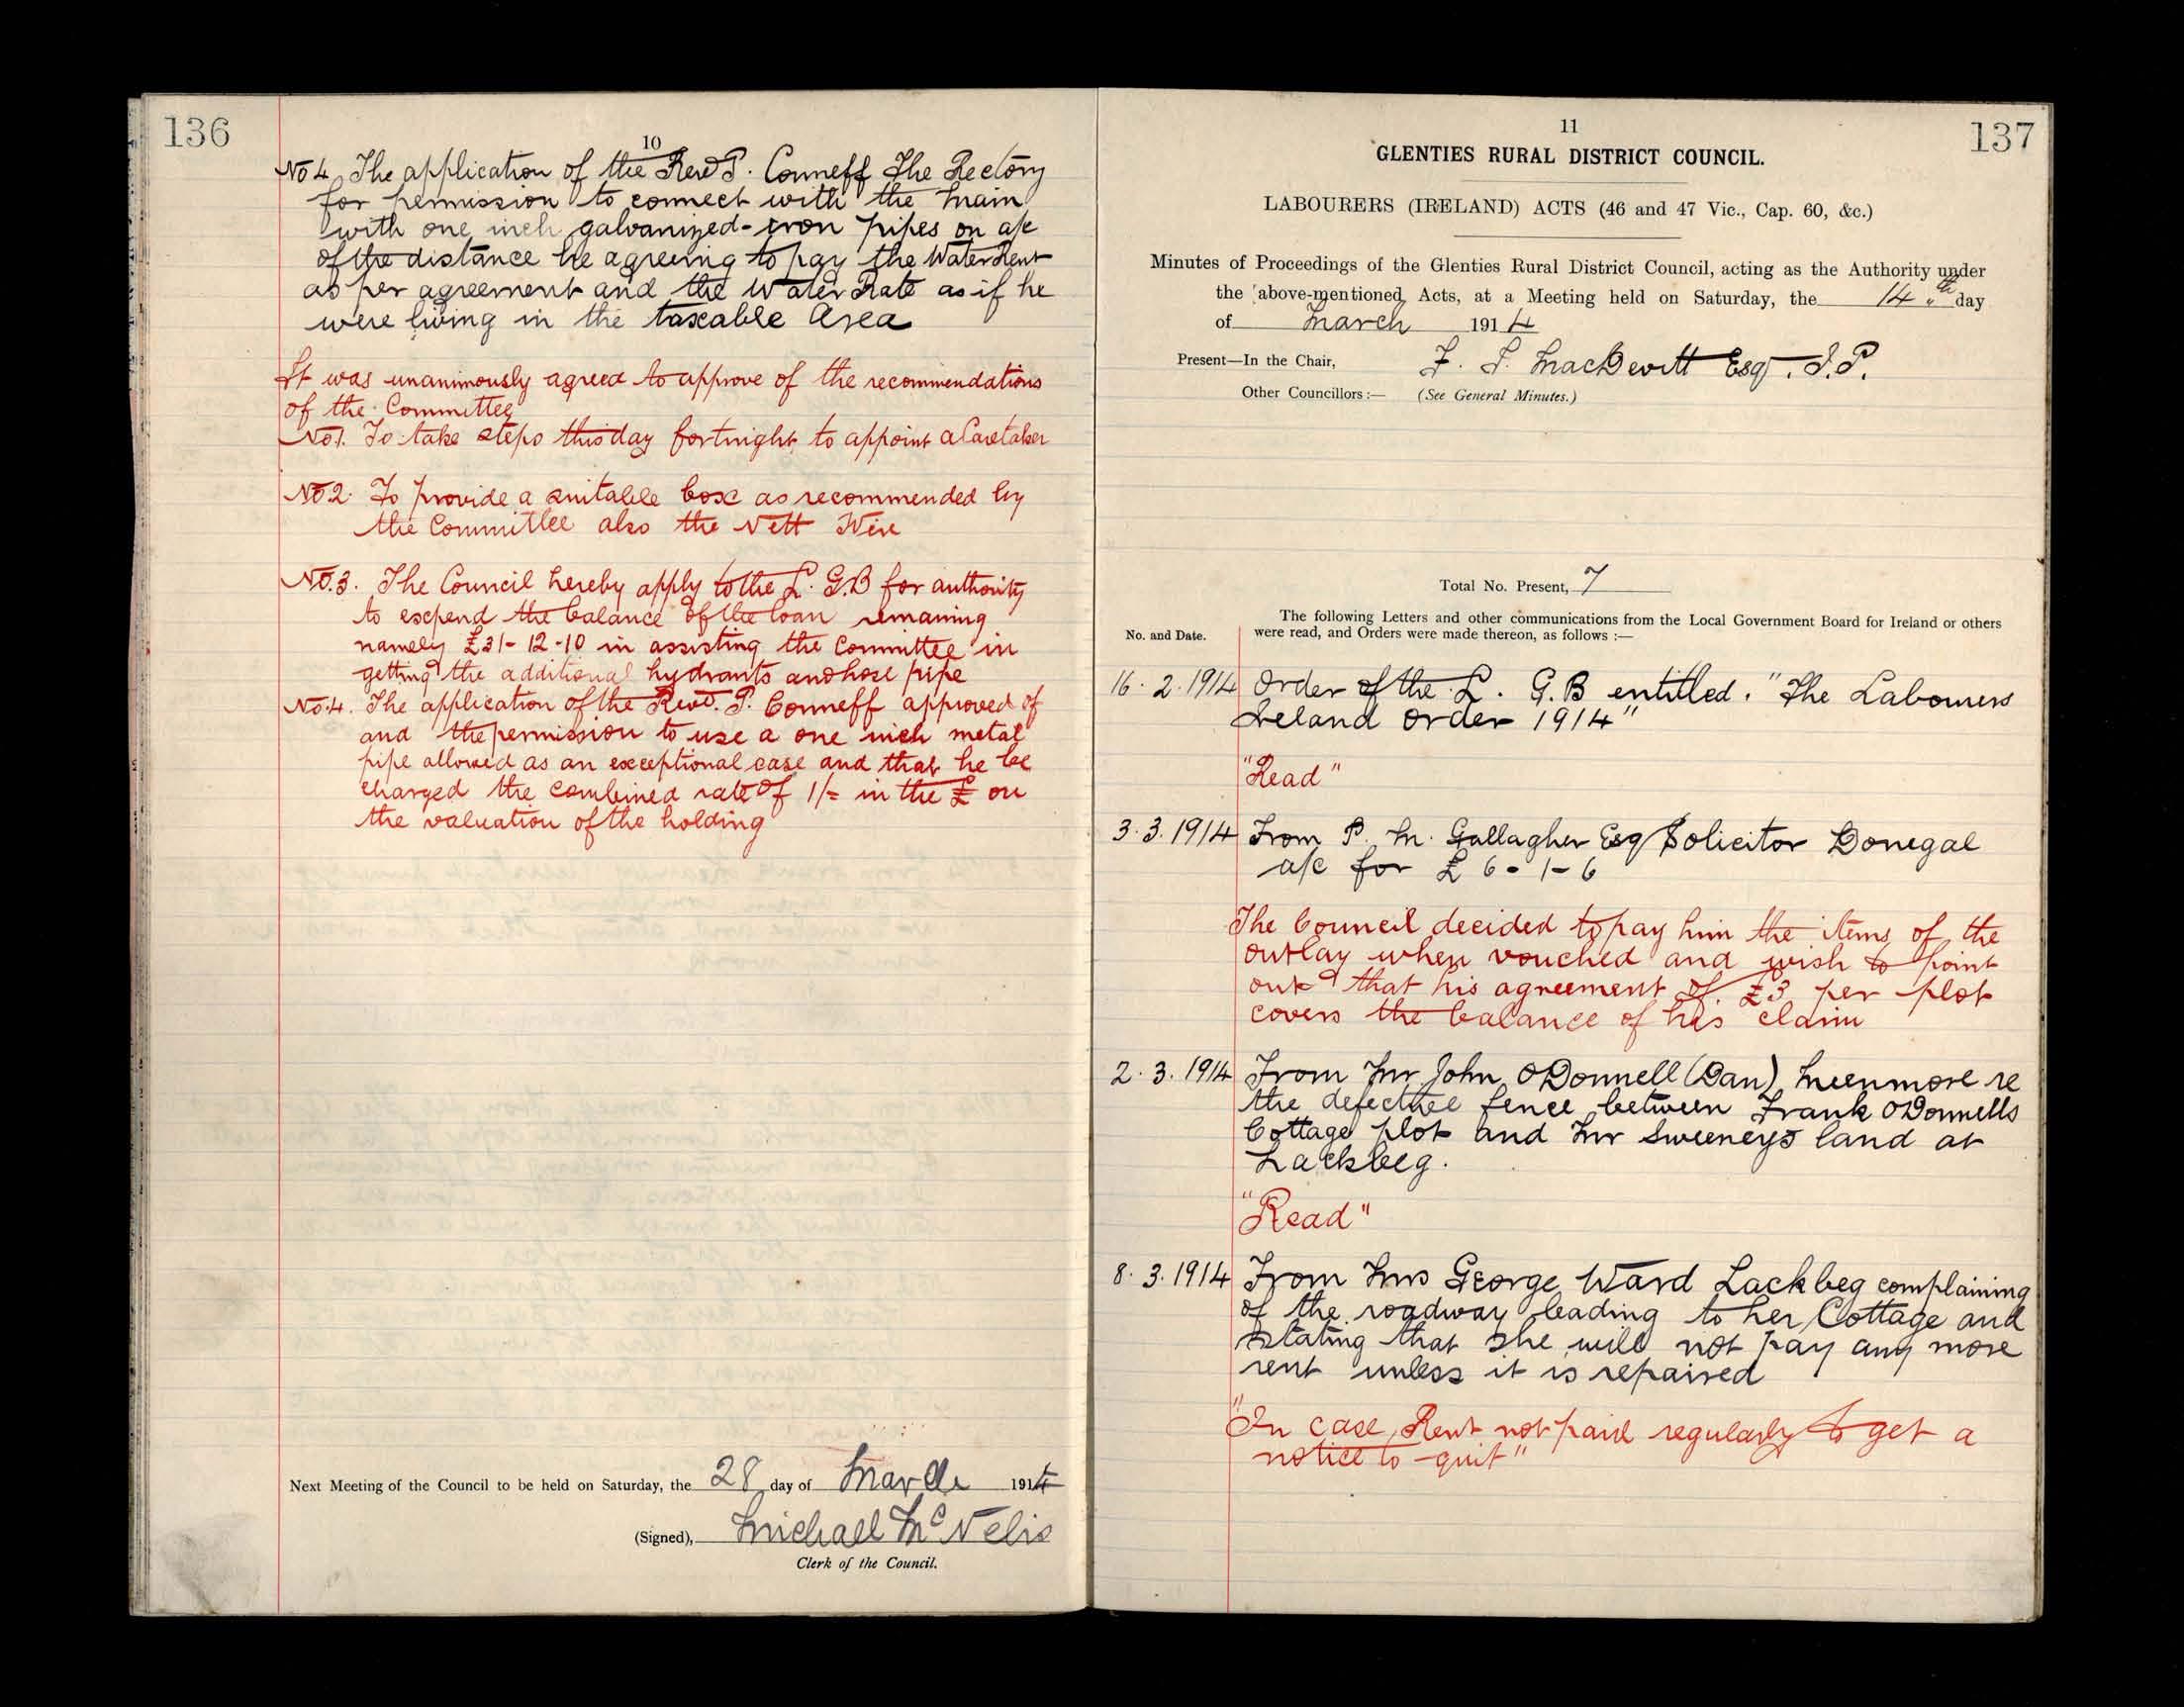 136
10
No 4 The application of the Revd P. Conneff The Rectory
for permission to connect with the main
with one inch galvanized-iron pipes on a/c
of the distance he agreeing to pay the Water Rent
as per agreement and the Water Rate as if he
were living in the taxable Area
It was unanimously agreed to approve of the recommendations
of the Committee
No 1. To take steps this day fortnight to appoint a Caretaker
No 2. To provide a suitable box as recommended by
the Committee also the Nett Wire
No. 3. The Council hereby apply to the L. G. B for authority
to expend the balance of the loan remaining
namely £31-12-10 in assisting the Committee in
getting the additional hydrants and hose pipe
No. 4. The application of the Revd. P. Conneff approved of
and the permission to use a one inch metal
pipe allowed as an exceptional case and that he be
charged the combined rate of 1/= in the £ on
the valuation of the holding
Next Meeting of the Council to be held on Saturday, the 28 day of March 1914
(Signed), Michael McNelis
Clerk of the Council.
11
137
GLENTIES RURAL DISTRICT COUNCIL.
LABOURERS (IRELAND) ACTS (46 and 47 Vic., Cap. 60, &c.)
Minutes of Proceedings of the Glenties Rural District Council, acting as the Authority under
the above-mentioned Acts, at a Meeting held on Saturday, the 14th day
of March 1914
Present—In the Chair, F. S. MacDevitt Esq. J. P.
Other Councillors:— (See General Minutes.)
Total No. Present, 7
No. and Date.
The following Letters and other communications from the Local Government Board for Ireland or others
were read, and Orders were made thereon, as follows:—
16. 2. 1914 Order of the L. G. B entitled. "The Labourers
Ireland Order 1914"
"Read"
3. 3. 1914 From P. M. Gallagher Esq Solicitor Donegal
a/c for £6-1-6
The Council decided to pay him the items of the
outlay when vouched and wish to point
out that his agreement of £3 per plot
covers the balance of his claim
2. 3. 1914 From Mr John ODonnell (Dan) Meenmore re
the defective fence between Frank ODonnells
Cottage plot and Mr Sweeneys land at
Lackbeg.
"Read"
8. 3. 1914 From Mrs George Ward Lackbeg complaining
of the roadway leading to her Cottage and
stating that she will not pay any more
rent unless it is repaired
"In case Rent not paid regularly to get a
notice to-quit"